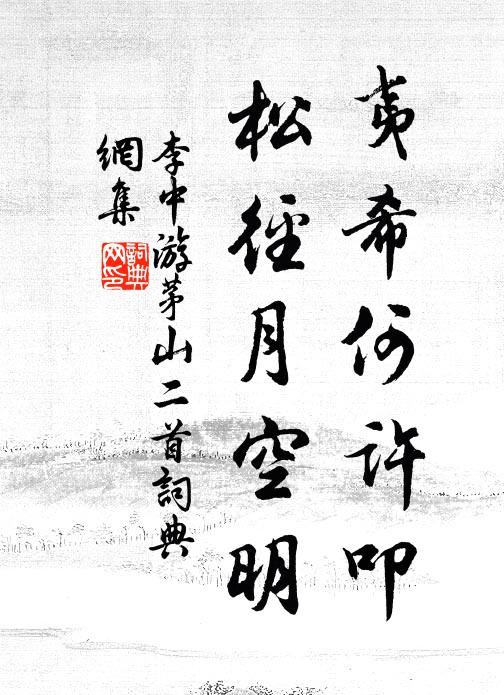 夷希何許叩
松徑月空明
李中游茅山二首詞典
網集
詞典
网印